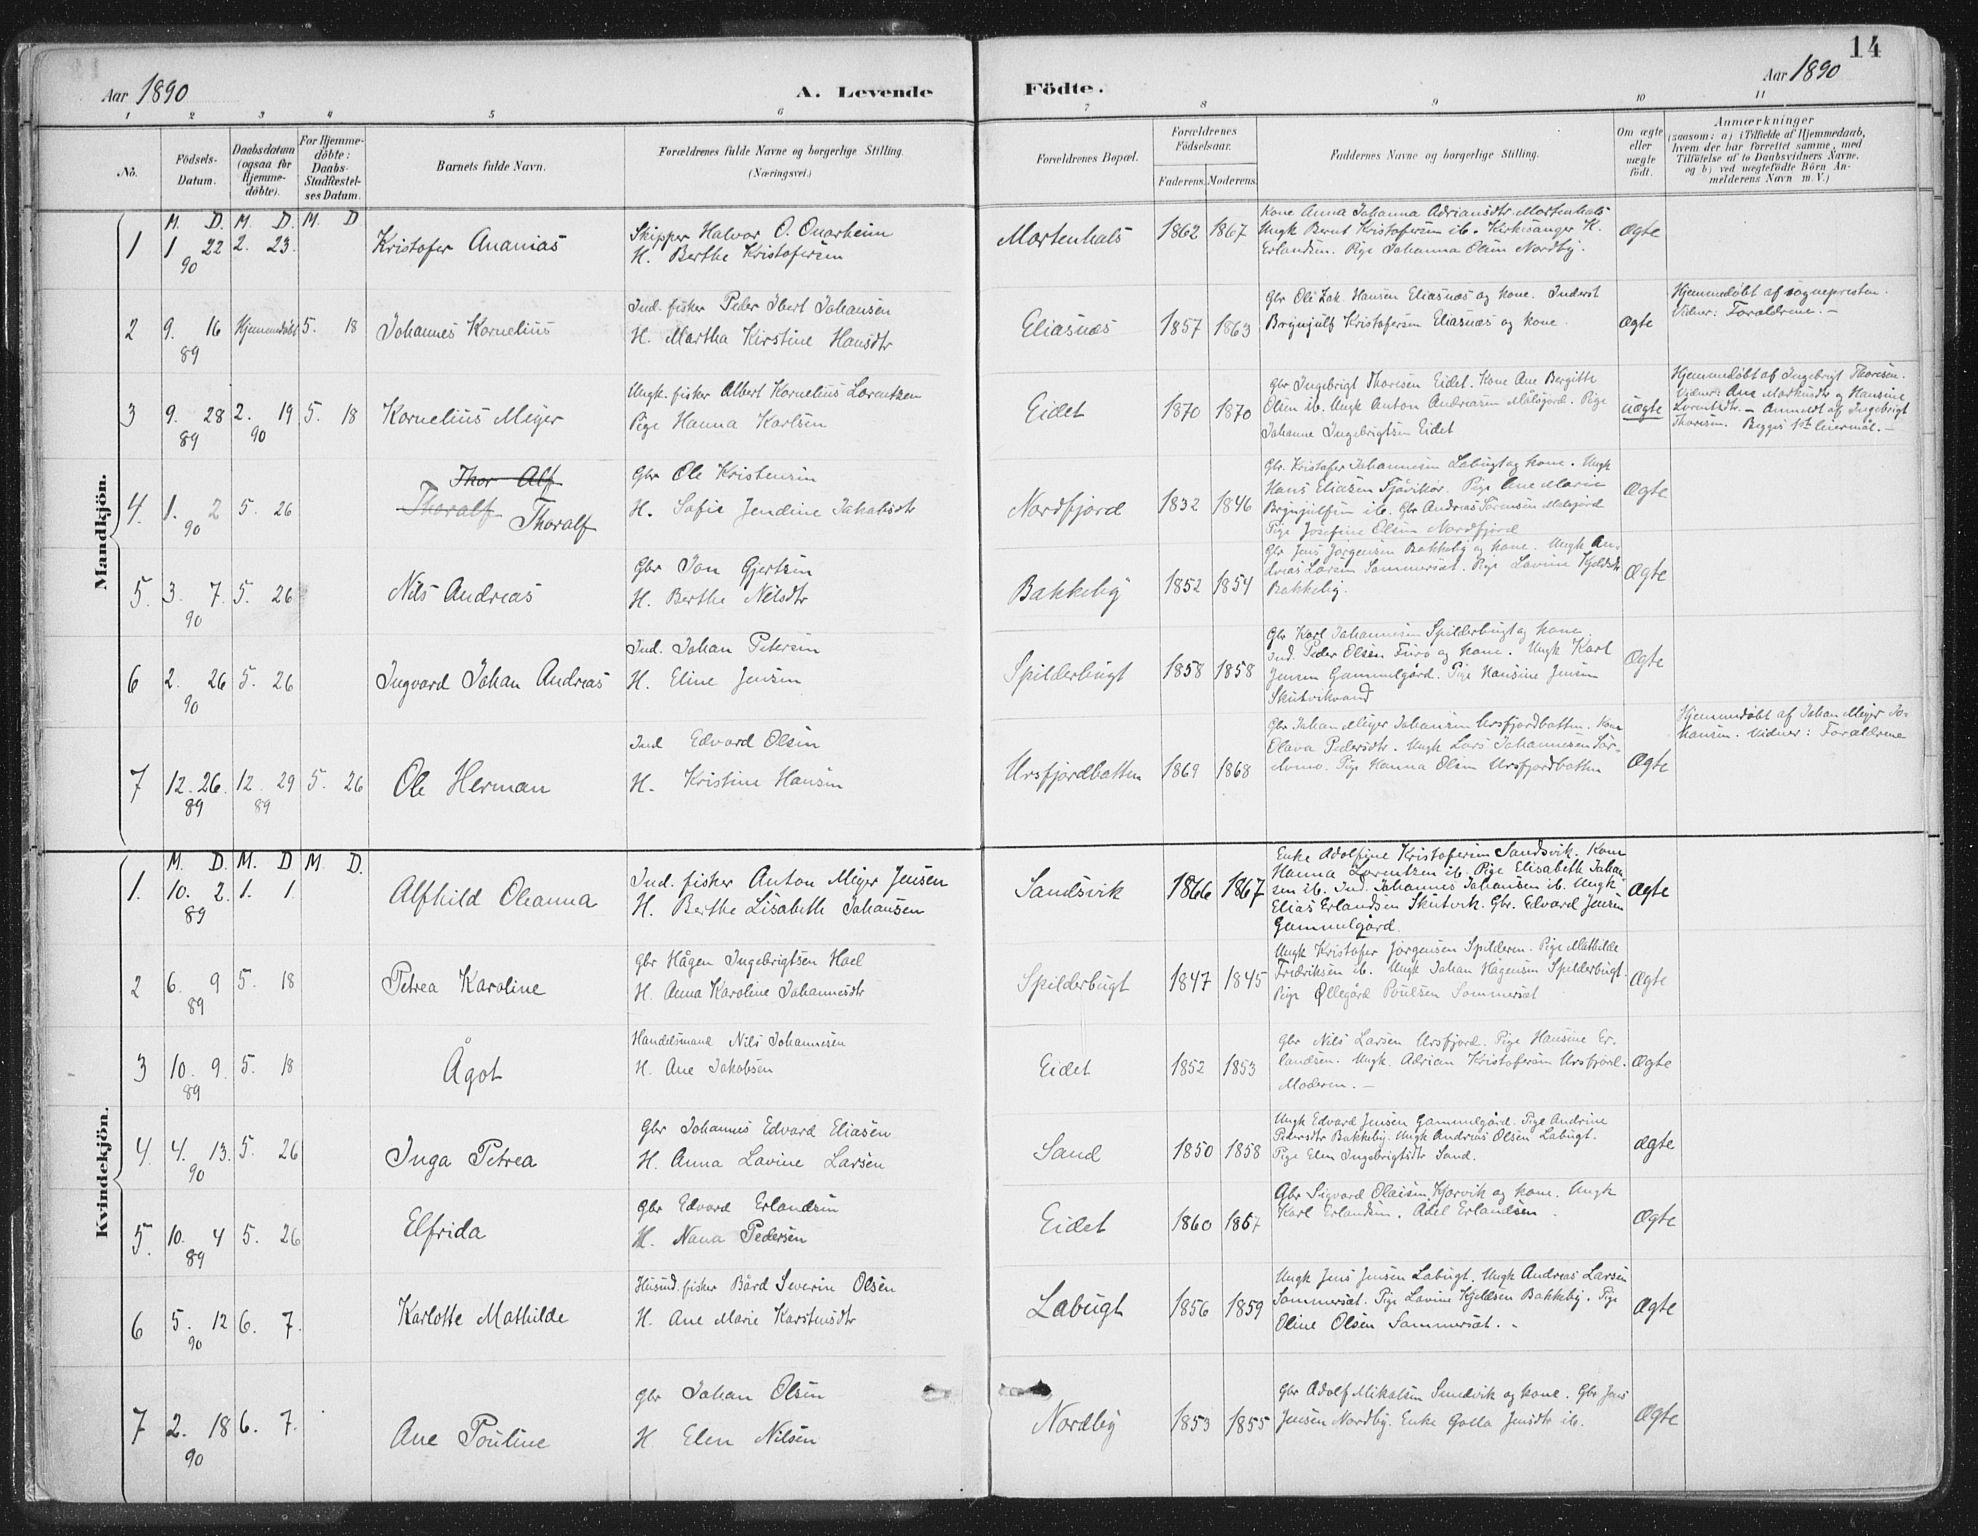 14
Aar 1890
A. Levende
Födte.
Aar 1890
1 2 3 4 5 6 7 8 9 10 11
No.
Födsels-Datum.
Daabsdatum (ogsaa for Hjemme-döbte).
For Hjemme-döbte: Daabs-Stadfæstel-ses Datum.
Barnets fulde Navn.
Forældrenes fulde Navne og borgerlige Stilling. (Næringsvei.)
Forældrenes Bopæl.
Forældrenes Födselsaar.
Faderens. Moderens.
Faddernes Navne og borgerlige Stilling.
Om ægte eller uægte födt.
Anmærkninger
(saasom: a) i Tilfælde af Hjemmedaab,
hvem der har forrettet samme, med
Tilföielse af to Daabsvidners Navne,
og b) ved uægtefödte Börn An-
melderens Navn m. V.)
Mandkjön.
M. D. M. D. M. D
1 1 22 90 2. 23.
Kristofer Ananias
Skipper Halvor O. Onarheim
H. Berthe Kristofersen
Mortenhals 1862 1867
Kone Anna Johanna Adriansdtr Mortenhals
Ungk Bernt Kristofersen ib. Kirkesanger K.
Erlandsen. Pige Johanna Olsen Nordby.
Ægte
2 9. 16 89 Hjemmedöbt 5. 18
Johannes Kornelius
Ind. fisker Peder Ibert Johansen
H. Martha Kirstine Hansdtr
Eliasnæs 1857 1863
Gbr Ole Zak. Hansen Eliasnæs og kone. Inderst
Brynjulf Kristofersen Eliasnæs og kone.
Ægte
Hjemmedöbt af sognepresten.
Vidner: Forældrene. –
3 9. 28 89 2. 19 90 5. 18
Kornelius Meyer
Ungk. fisker Albert Kornelius Lorentzen
Pige Hanna Karlsen
Eidet 1870 1870
Gbr Ingebrigt Thoresen Eidet. Kone Ane Bergitte
Olsen ib. Ungk Anton Andreasen Målsjord. Pige
Johanne Ingebrigtsen Eidet
uægte
Hjemmedöbt af Ingebrigt Thoresen.
Vidner: Ane Markusdtr og Hansine
Lorentsdtr. – Anmeldt af Ingebrigt
Thoresen. Begges 1ste leiermål. –
4. 1. 2 90 5. 26
Thor Alf
Thoralf Thoralf
Gbr Ole Kristensen
H. Sofie Jendine Jakobsdtr
Nordfjord 1832 1846
Gbr. Kristofer Johannesen Labugt og kone. Ungk
Hans Eliasen Tjåvikår. Pige Ane Marie
Brynjulfsen ib. Gbr Andreas Sörensen Målsjord
Pige Josefine Olsen Nordfjord
Ægte
5. 3. 7. 90 5. 26
Nils Andreas
Gbr Jon Gjertsen
H. Berthe Nilsdtr
Bakkeby 1852 1854
Gbr Jens Jörgensen Bakkeby og kone. Ungk An-
dreas Larsen Sommersæt. Pige Lavine Kjeldsdtr
Bakkeby.
Ægte
6 2. 26 90 5. 26
Ingvard Johan Andreas
Ind. Johan Petersen
H. Eline Jensen
Spilderbugt 1858 1858
Gbr Karl Johannesen Spilderbugt og kone
Ind. Peder Olsen Furö og kone. Ungk Karl
Jensen Gammelgård. Pige Hansine Jensen
Skutvikvand
Ægte
7 12. 26. 89 12. 29 89 5. 26
Ole Herman
Ind Edvard Olsen
H. Kristine Hansen
Ursfjordbotten 1869 1868
Gbr Johan Meyer Johansen Ursfjordbotten. Kone
Olava Pedersdtr. Ungk Lars Johannesen Sör-
Pige Hanna Olsen Ursfjordbotten
Ægte
Hjemmedöbt af Johan Meyer Jo-
hansen. Vidner: Forældrene
Kvindekjön.
M. D. M. D M. D.
1. 10. 2. 89 1. 1
Alfhild Oleanna
Ind. fisker Anton Meyer Jensen
H. Berthe Lisabeth Johansen
Sandsvik 1866 1867
Enke Adolfine Kristofersen Sandsvik. Kone
Hanna Lorentzen ib. Pige Elisabeth Johan-
sen ib. Ind. Johannes Johansen ib. Ungk
Elias Erlandsen Skutvik. Gbr. Edvard Jensen
Gammelgård.
Ægte
2 6. 9 89 5. 18
Petrea Karoline
Gbr Hågen Ingebrigtsen Hael
H. Anna Karoline Johannesdtr
Spilderbugt 1847 1845
Ungk Kristofer Jörgensen Spilderen. Pige Mathilde
Fredriksen ib. Ungk Johan Hågensen Spilderbugt.
Pige Øllegård Poulsen Sommersæt
Ægte
3 10. 9. 89 5. 18
Ågot
Handelsmand Nils Johannesen
H. Ane Jakobsen
Eidet 1852 1853
Gbr Nils Larsen Ursfjord. Pige Hansine Er-
landsen. Ungk. Adrian Kristofersen Ursfjord.
Moderen. –
Ægte
4. 4. 13. 90 5. 26
Inga Petrea
Gbr Johannes Edvard Eliasen.
H. Anna Lavine Larsen
Sand 1850 1858
Ungk Edvard Jensen Gammelgård. Pige Andrine
Pedersdtr Bakkeby. Ungk Andreas Olsen Labugt.
Pige Elen Ingebrigtsdtr Sand.
Ægte
5. 10. 4 89 5. 26
Elfrida
Gbr Edvard Erlandsen
H. Nana Pedersen
Eidet 1860 1867
Gbr Sigvard Olaisen Kjorvik og kone. Ungk
Karl Erlandsen. Adel Erlandsen.
Ægte
6 5. 12 90 6. 7.
Karlotte Mathilde
Husmd. fisker Bård Severin Olsen
H. Ane Marie Karstensdtr
Labugt 1856 1859
Ungk Jens Jensen Labugt. Ungk Andreas Larsen
Sommersæt. Pige Lavine Kjeldsen Bakkeby. Pige
Oline Olsen Sommersæt. –
Ægte
7 2. 18 90 6. 7.
Ane Pouline
Gbr Johan Olsen
H Elen Nilsen
Nordby 1853 1855
Gbr Adolf Mikalsen Sandvik og kone. Gbr Jens
Jensen Nordby. Enke Golla Jensdtr ib.
Ægte